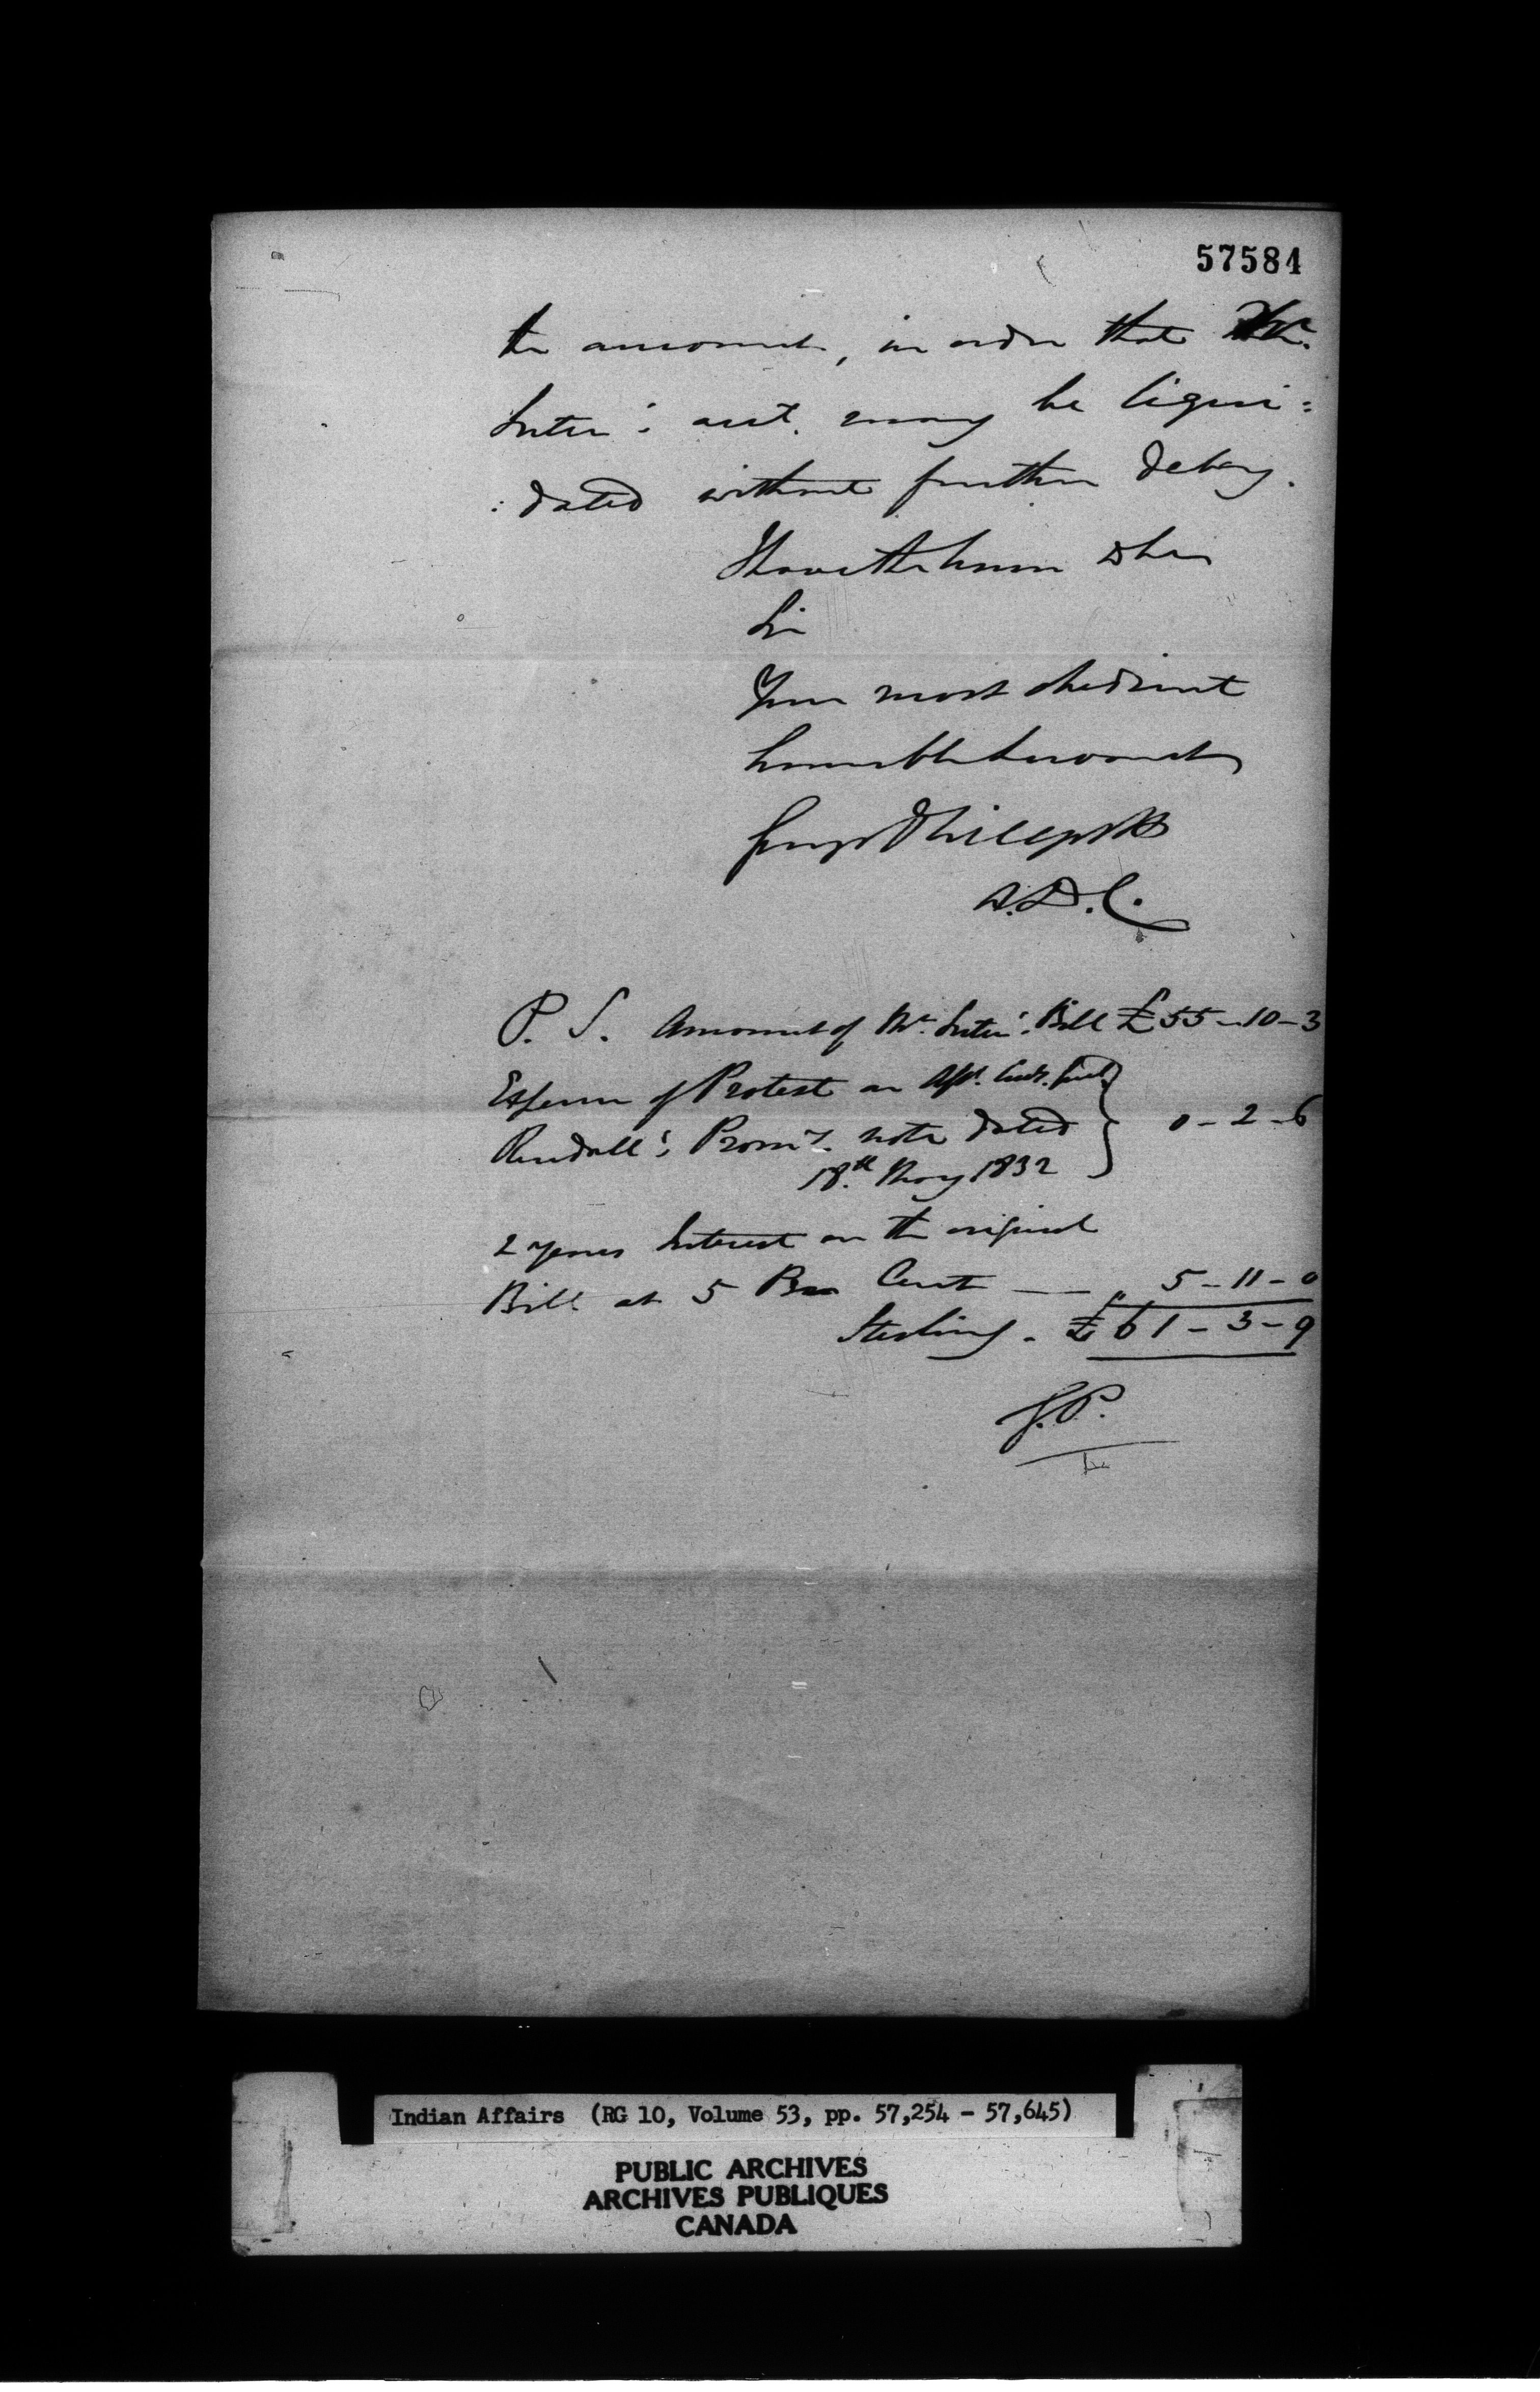 57584
the amount, in order that Mr.
Suter's acct. may be liqui:
:dated without further delay.
I have the honor to be
Sir
Your most obedient
humble Servant
George Phillpotts
A.D.C.
P.S. Amount of Mr. Suter's Bill £55-10-3
Expense of Protest on Asst.
Rendall's Promy. note dated } 0-2-6
18.th May 1832
2 years Interest on the original
Bill at 5 Per Cent — " 5-11-0
Sterling - £61-3-9
G.P.
Indian Affairs (RG 10, Volume 53, pp. 57,254 - 57,645)
PUBLIC ARCHIVES
ARCHIVES PUBLIQUES
CANADA